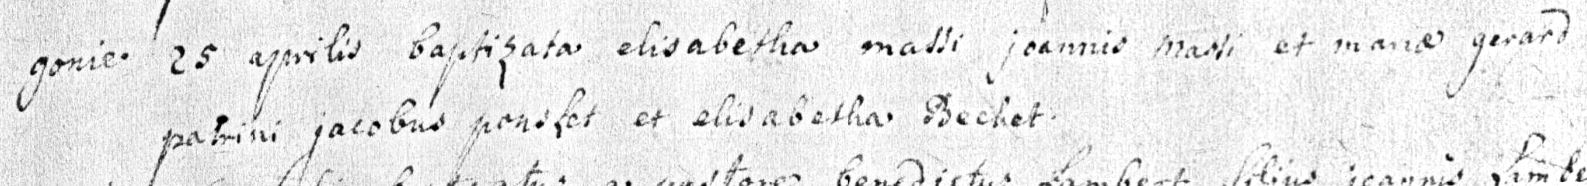 gonie. 25 aprilis baptizata elisabetha massi joannis massi et mariæ gerard
patrini jacobus ponslet et elisabetha Bechet.
a pastore benedictus Lambert filius joannis